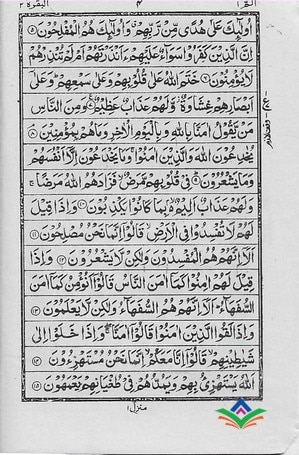 البقرة ٢
٤
الٓمّٓ ١
اُولٰٓئِكَ عَلٰى هُدًى مِّنْ رَّبِّهِمْ ۗ وَاُولٰٓئِكَ هُمُ الْمُفْلِحُوْنَ ۝٥
اِنَّ الَّذِيْنَ كَفَرُوْا سَوَآءٌ عَلَيْهِمْ ءَاَنْذَرْتَهُمْ اَمْ لَمْ تُنْذِرْهُمْ
لَا يُؤْمِنُوْنَ ۝٦ خَتَمَ اللّٰهُ عَلٰى قُلُوْبِهِمْ وَعَلٰى سَمْعِهِمْ ۗ وَعَلٰٓى
اَبْصَارِهِمْ غِشَاوَةٌ ۫ وَّلَهُمْ عَذَابٌ عَظِيْمٌ ۝٧ وَمِنَ النَّاسِ
مَنْ يَّقُوْلُ اٰمَنَّا بِاللّٰهِ وَبِالْيَوْمِ الْاٰخِرِ وَمَا هُمْ بِمُؤْمِنِيْنَ ۝٨
يُخٰدِعُوْنَ اللّٰهَ وَالَّذِيْنَ اٰمَنُوْا ۚ وَمَا يَخْدَعُوْنَ اِلَّآ اَنْفُسَهُمْ
وَمَا يَشْعُرُوْنَ ۝٩ فِيْ قُلُوْبِهِمْ مَّرَضٌ ۙ فَزَادَهُمُ اللّٰهُ مَرَضًا ۚ
وَلَهُمْ عَذَابٌ اَلِيْمٌ ۢ ۙ بِمَا كَانُوْا يَكْذِبُوْنَ ۝١٠ وَاِذَا قِيْلَ
لَهُمْ لَا تُفْسِدُوْا فِى الْاَرْضِ ۙ قَالُوْٓا اِنَّمَا نَحْنُ مُصْلِحُوْنَ ۝١١
اَلَآ اِنَّهُمْ هُمُ الْمُفْسِدُوْنَ وَلٰكِنْ لَّا يَشْعُرُوْنَ ۝١٢ وَاِذَا
قِيْلَ لَهُمْ اٰمِنُوْا كَمَآ اٰمَنَ النَّاسُ قَالُوْٓا اَنُؤْمِنُ كَمَآ اٰمَنَ
السُّفَهَآءُ ۗ اَلَآ اِنَّهُمْ هُمُ السُّفَهَآءُ وَلٰكِنْ لَّا يَعْلَمُوْنَ ۝١٣
وَاِذَا لَقُوا الَّذِيْنَ اٰمَنُوْا قَالُوْٓا اٰمَنَّا ۚ وَاِذَا خَلَوْا اِلٰى
شَيٰطِيْنِهِمْ ۙ قَالُوْٓا اِنَّا مَعَكُمْ ۙ اِنَّمَا نَحْنُ مُسْتَهْزِءُوْنَ ۝١٤
اَللّٰهُ يَسْتَهْزِئُ بِهِمْ وَيَمُدُّهُمْ فِيْ طُغْيَانِهِمْ يَعْمَهُوْنَ ۝١٥
منزل ١